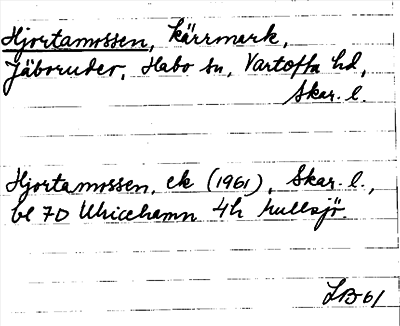 Hjortamossen, kärrmark,
Jäboruder, Habo sn, Vartofta hd,
Skar. l.
Hjortamossen, ek (1961), Skar. l.,
bl 7D Ulricehamn 4h Mullsjö.
LB 61